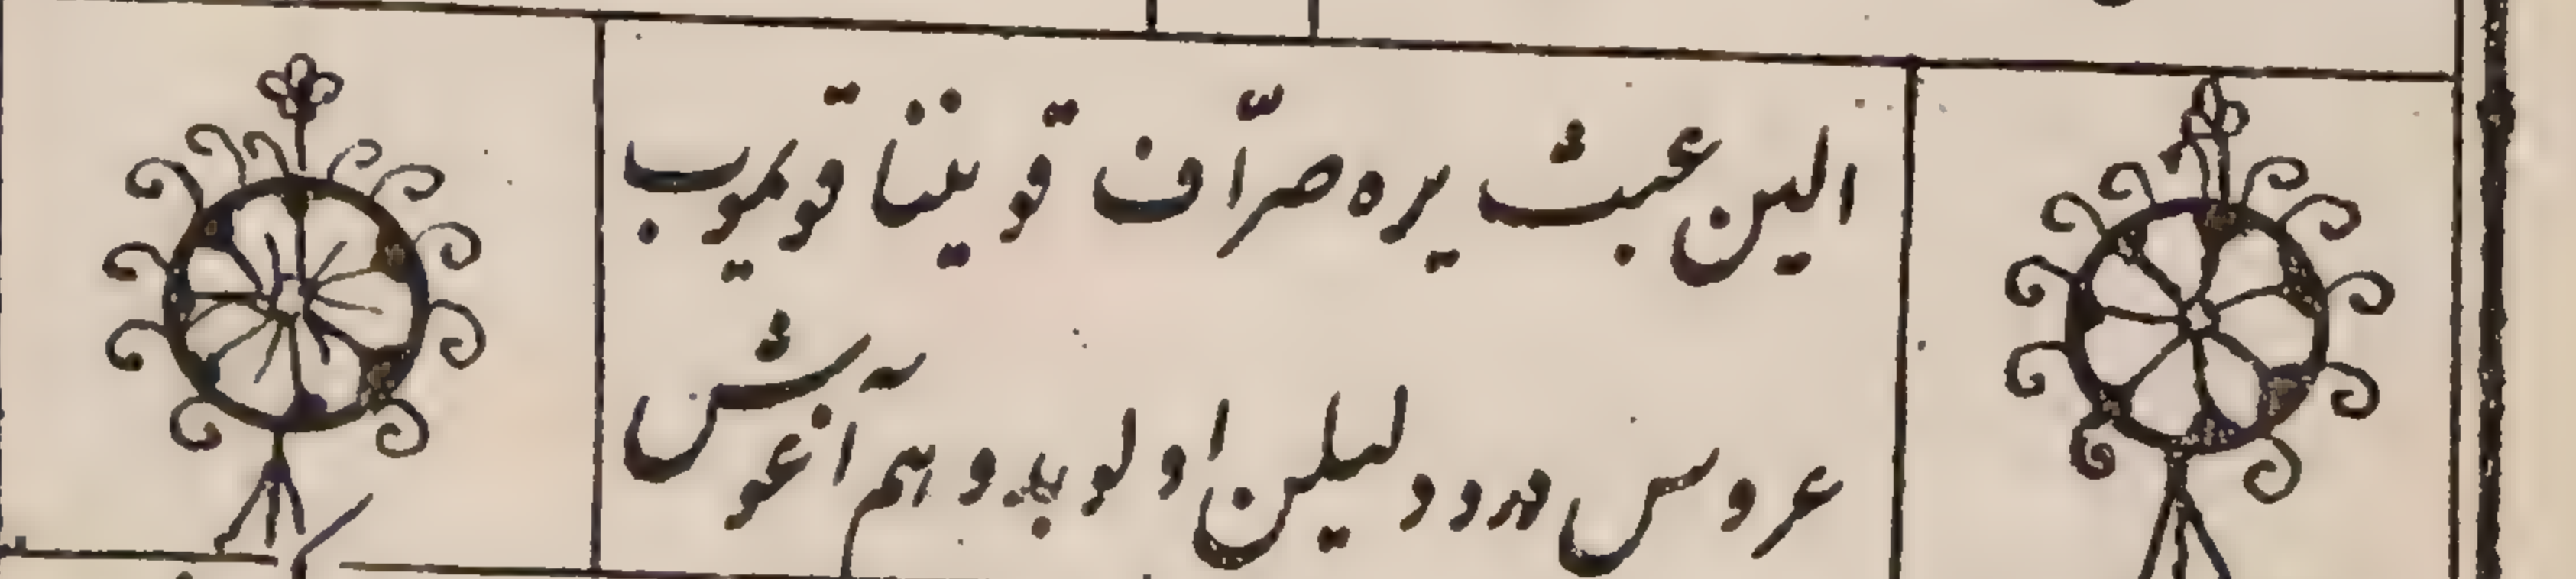 الین عبث یره صرّاف قویننا قویموب
عروس دردلیلن اولوبدو هم آغوش